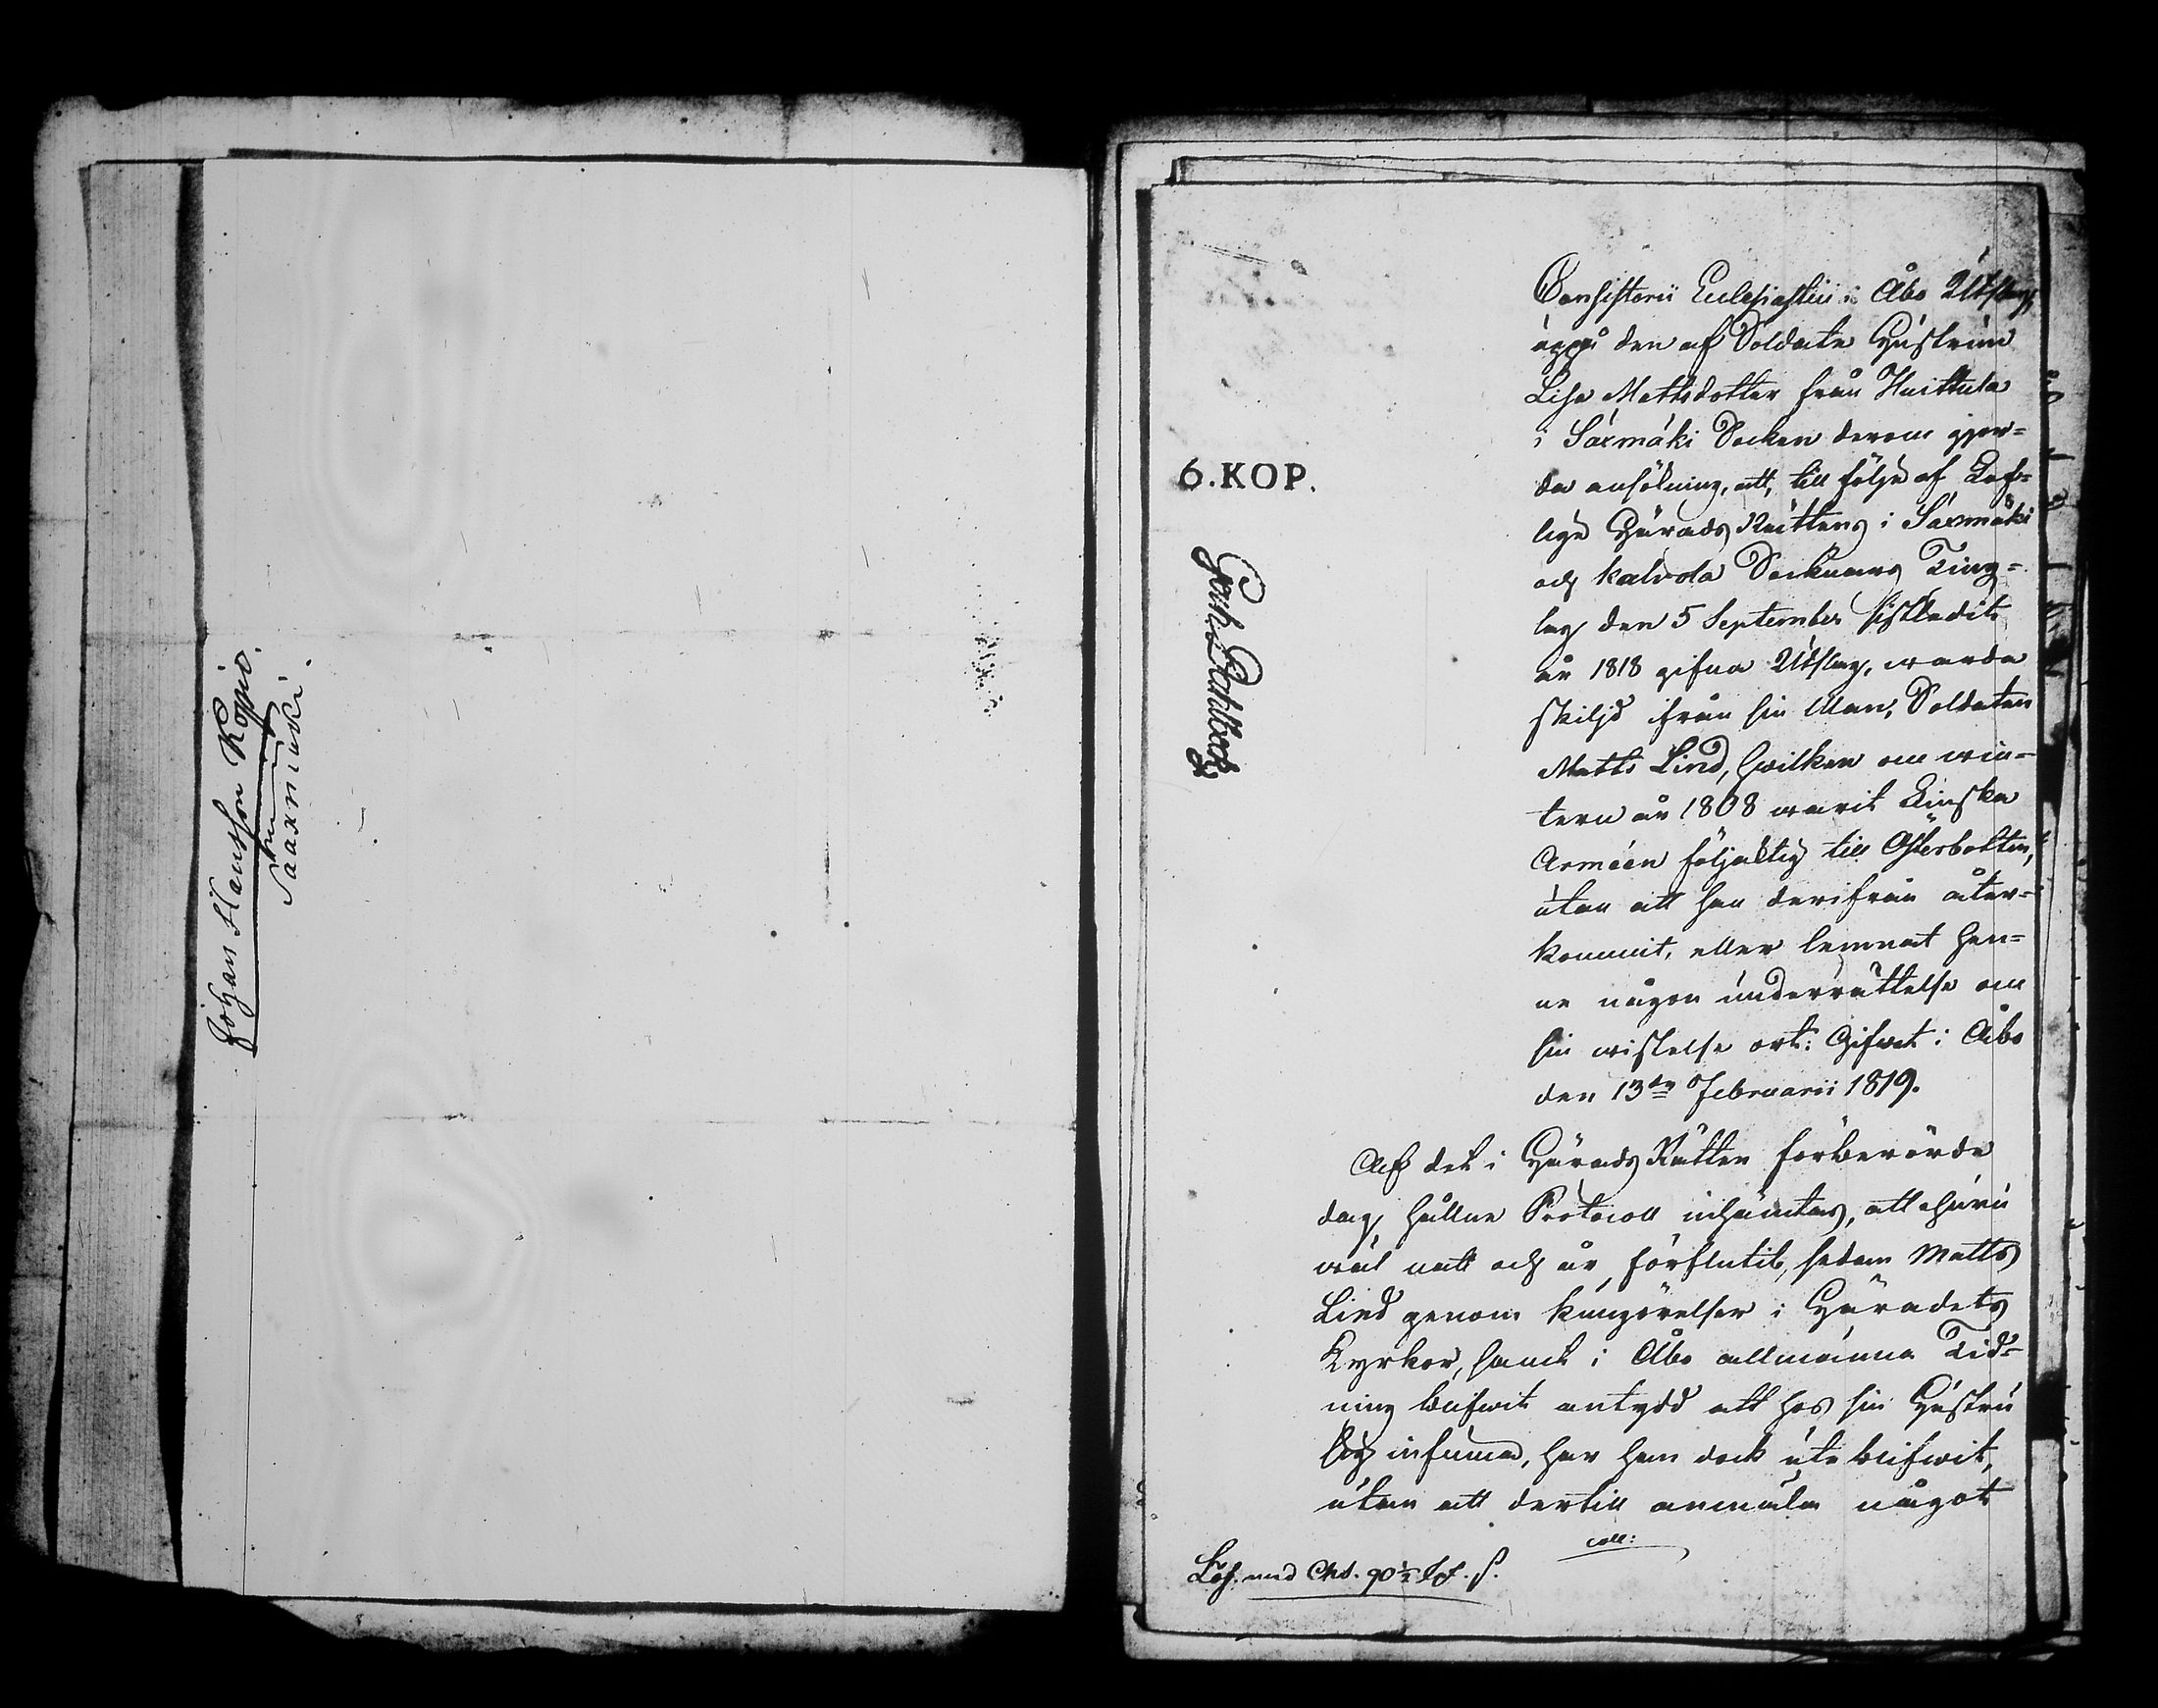 Johan Hansson Kopio.
Saaxmäki.
6. KOP.
Consistorii Eclesiastici i Åbo Utslag,
uppå den af Soldate Hustrun
Lisa Mattsdotter från Huittula
i Säxmäki Socken derom gjor=
da ansökning, att, till följe af Lof=
lige Härads Rättens i Säxmäki
och Kalvola Socknars Ting=
lag den 5 September sistledit
år 1818 gifna Utslag, warda
skiljd ifrån sin Man, Soldaten
Matts Lind, hwilken om win=
tern år 1808 warit Finska
Arméen följaktig till Österbotten,
utan att han derifrån åter=
kommit, eller lemnat hen=
ne någon underrättelse om
sin wistelse ort: Gifwet i Åbo
den 13de Februarii 1819.
Af det i Härads Rätten förberörde
dag hållne Protocoll inhämtas, att ehuru
wäl natt och år förflutit, sedan Matts
Lind genom kungörelser i Häradets
Kyrkor, samt i Åbo allmänna Tid=
ning blifwit antydd att hos sin Hustru
sig infinna, har han dock ute blifwit,
utan att dertill anmäla något
coll: